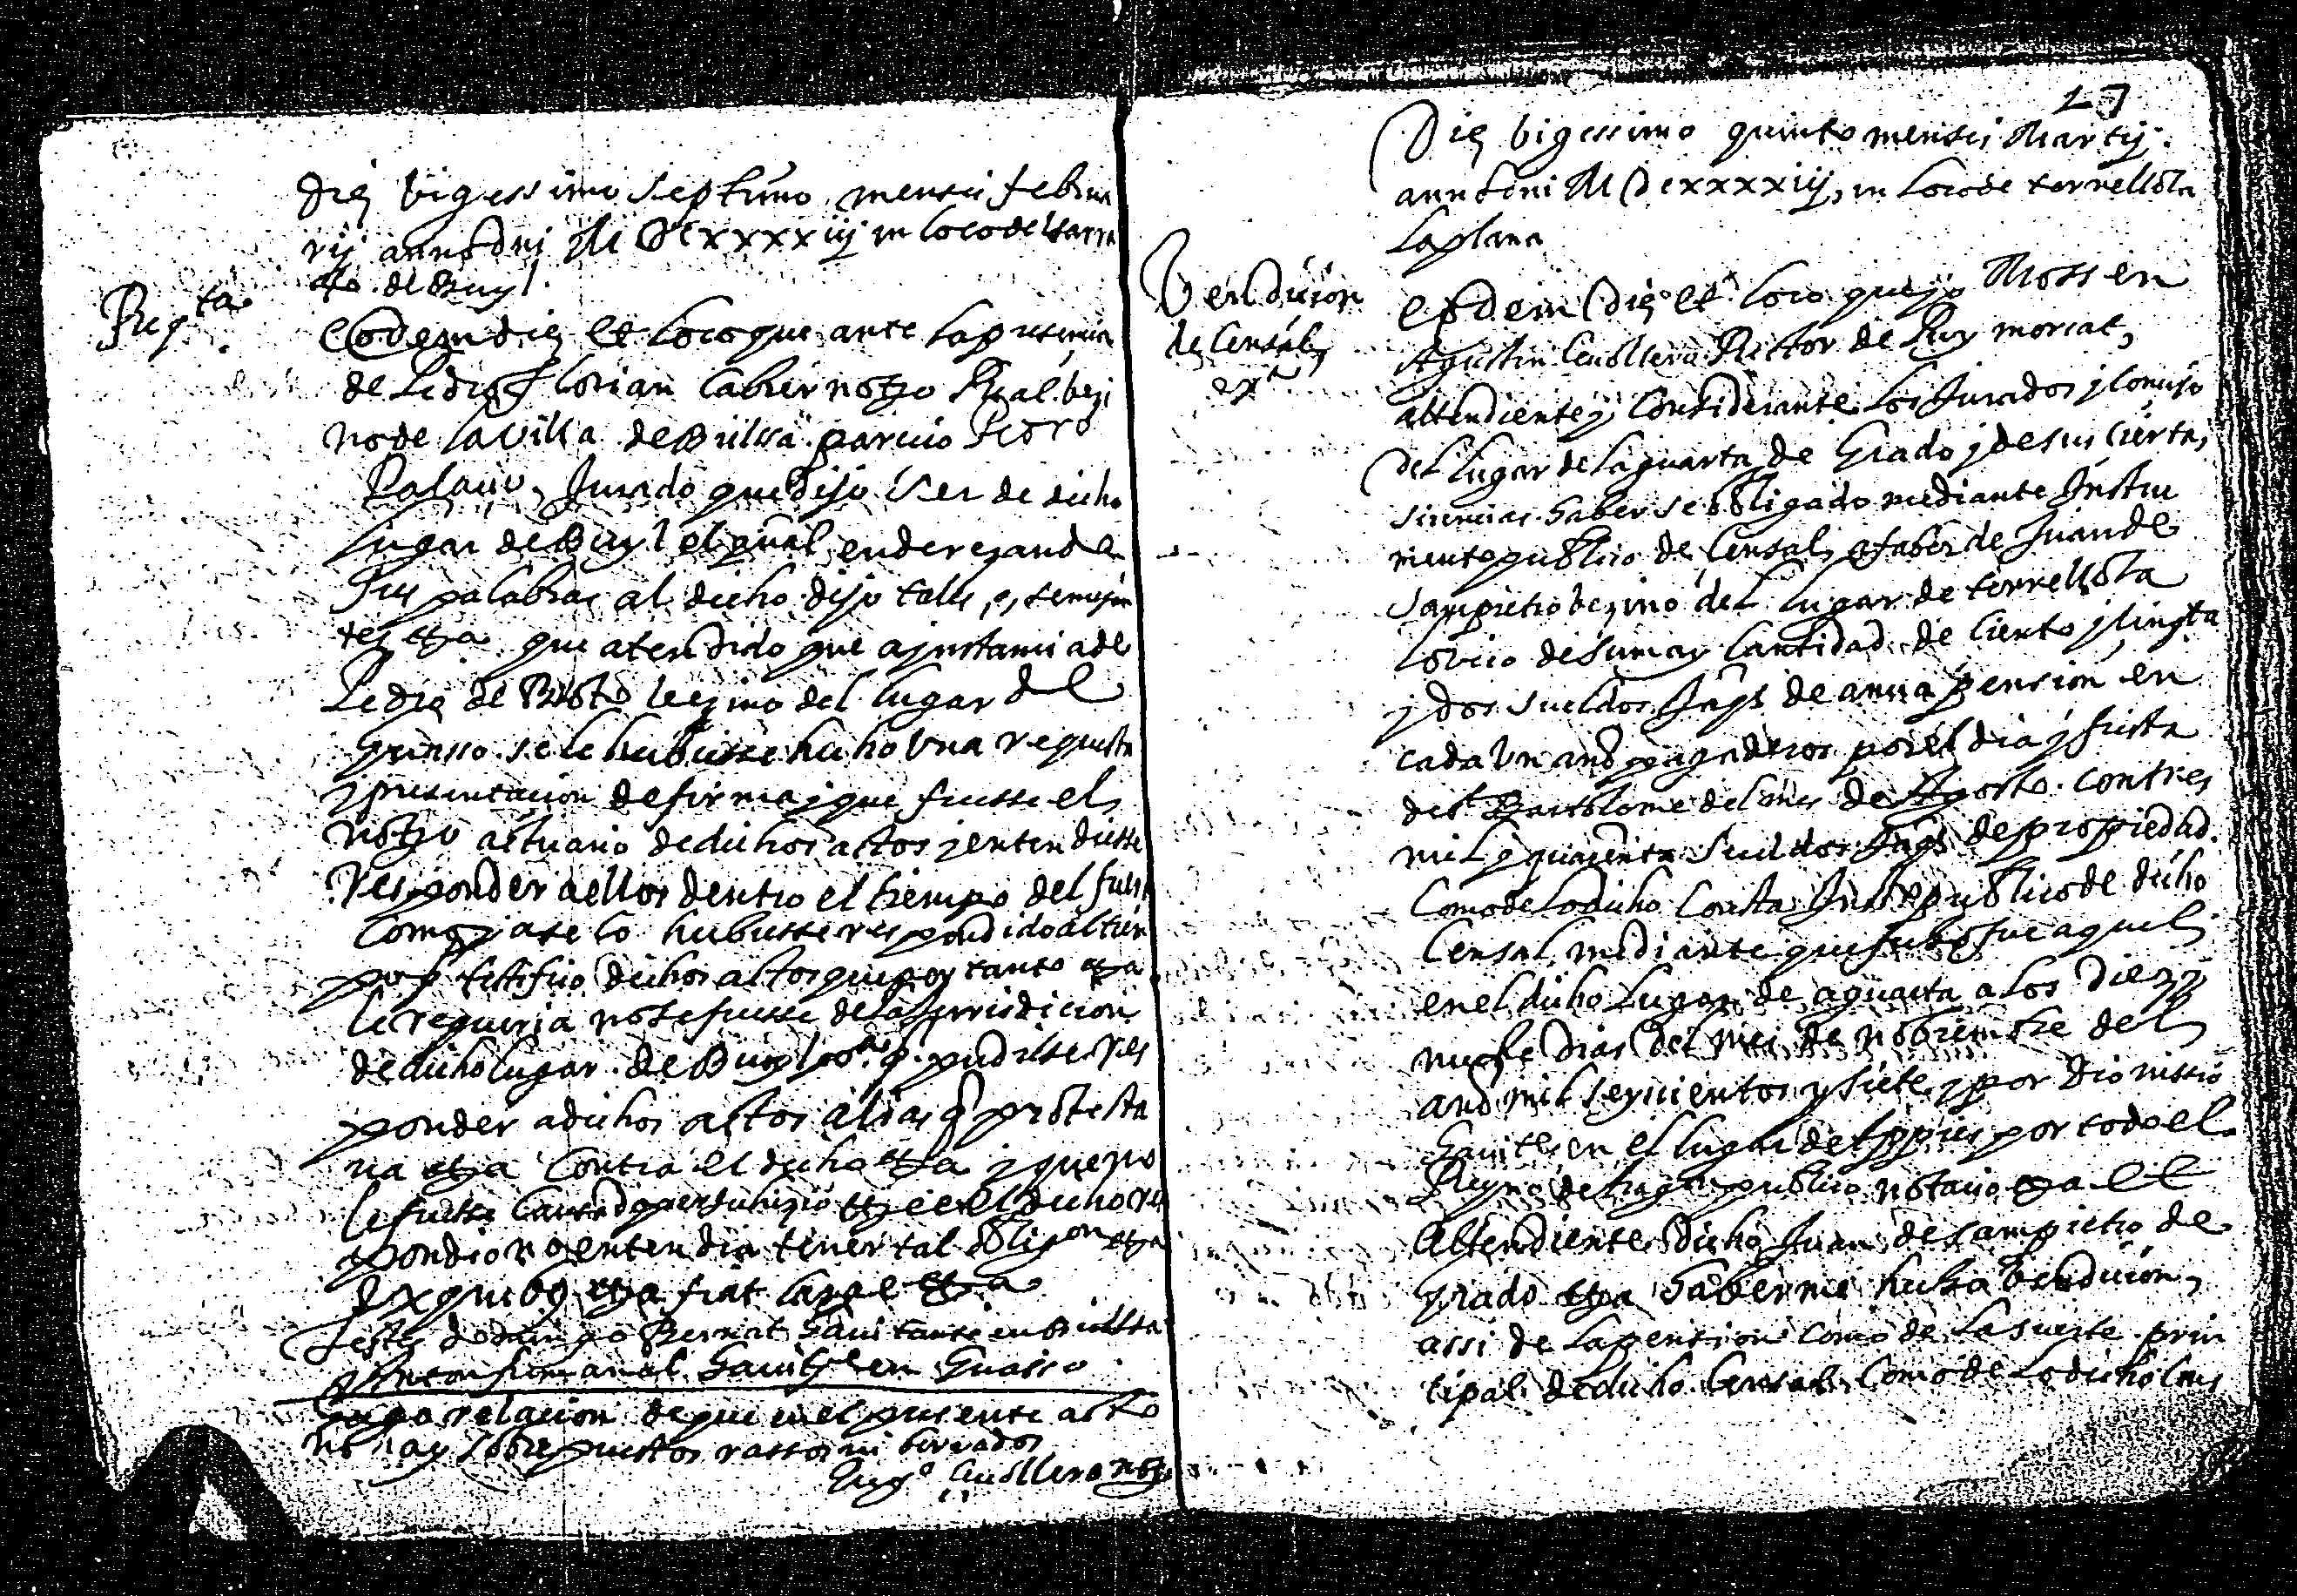 Die bigessimo septimo mensis februa
rij anno dni M DCxxxxiij in loco de
de Buyl
Reqta
eodem die et loco que ante la presencia
de Pedro Florian Cabrer notro Real bezi
no de la villa de Bielssa parecio Pedro
Palacio, Jurado que dijo ser de dicho
lugar de Buyl el qual enderezando
sus palabras al dicho dijo tales, o, semejan
tes etza que atendido que a instancia de
Pedro de Broto bezino del lugar de
Guasso se le hubiesse hecho una requesta
y presentacion de firma y que fuesse el
notro actuario de dichos actos y entendiesse
responder a ellos dentro el tiempo del fuero
como ya se lo hubiesse respondido al tiem
po q testifico dichos actos que por tanto etza
le requeria no se fuesse de la Jurisdicion
de dicho lugar de Buyl q pudiesse res
ponder a dichos actos alias q protesta
ua etza contra el dicho etza y que no
le fuesse causado perjuhizio etz et el dicho res
pondio no entendia tener tal obligon etza
Ex quibus etza fiat large etza
Testes Domingo Bernat hauitante en Bielssa
y Anton hauite en Guasso
hago relacion de que en el presente acto
no hay sobrepuestos rassos ni borrados
Cuollera notro
17
Die bigessimo quinto mensis Martij
anno dni M DCxxxxiij, in loco de torrellola
la plana
Vendicion
de Censal
exta
eodem die et loco que yo Mossen
Agustin Ceuollero Rector de Puy morcat,
attendiente y considerante los Jurados y concejo
del lugar de laguarta de Grado y de sus ciertas
sciencias haberse obligado mediante Instru
mento publico de Censal, a saber de Juan de
Sampietro bezino del lugar de torrellola
lobico de suma y cantidad de ciento y cinqta
y dos sueldos Jaqs de annua pension en
cada un año pagaderos por el dia y fiesta
de St Bartolome del mes de Agosto con tres
mil y quarenta sueldos Jaqs de propiedad
como de lo dicho consta Inste publico de dicho
Censal, mediante que fecho fue aquel
en el dicho lugar de aguarta a los diez y
nuebe dias del mes de nobiembre del
año mil seycientos y siete, y por Dionissio
hauite en el lugar de por todo el
Reyno de Aragon publico notario etza et
Attendiente dicho Juan de Sampietro de
grado etza haberme hecho bendicion,
assi de la pension como de la suerte prin
cipal de dicho Censal, como de lo dicho cons